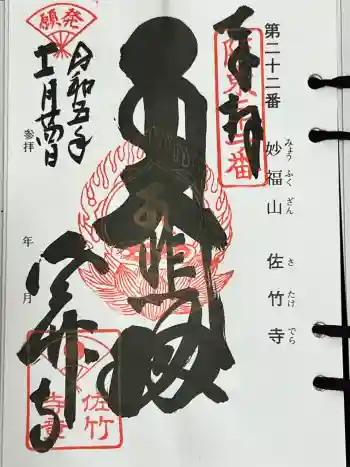 第二十二番 妙福山 佐竹寺
みょうふくざん さたけでら
奉拝
坂東二十二番
大悲閣
佐竹寺
佐竹寺章
発願
令和五年
十一月廿四日
参拝
年 月